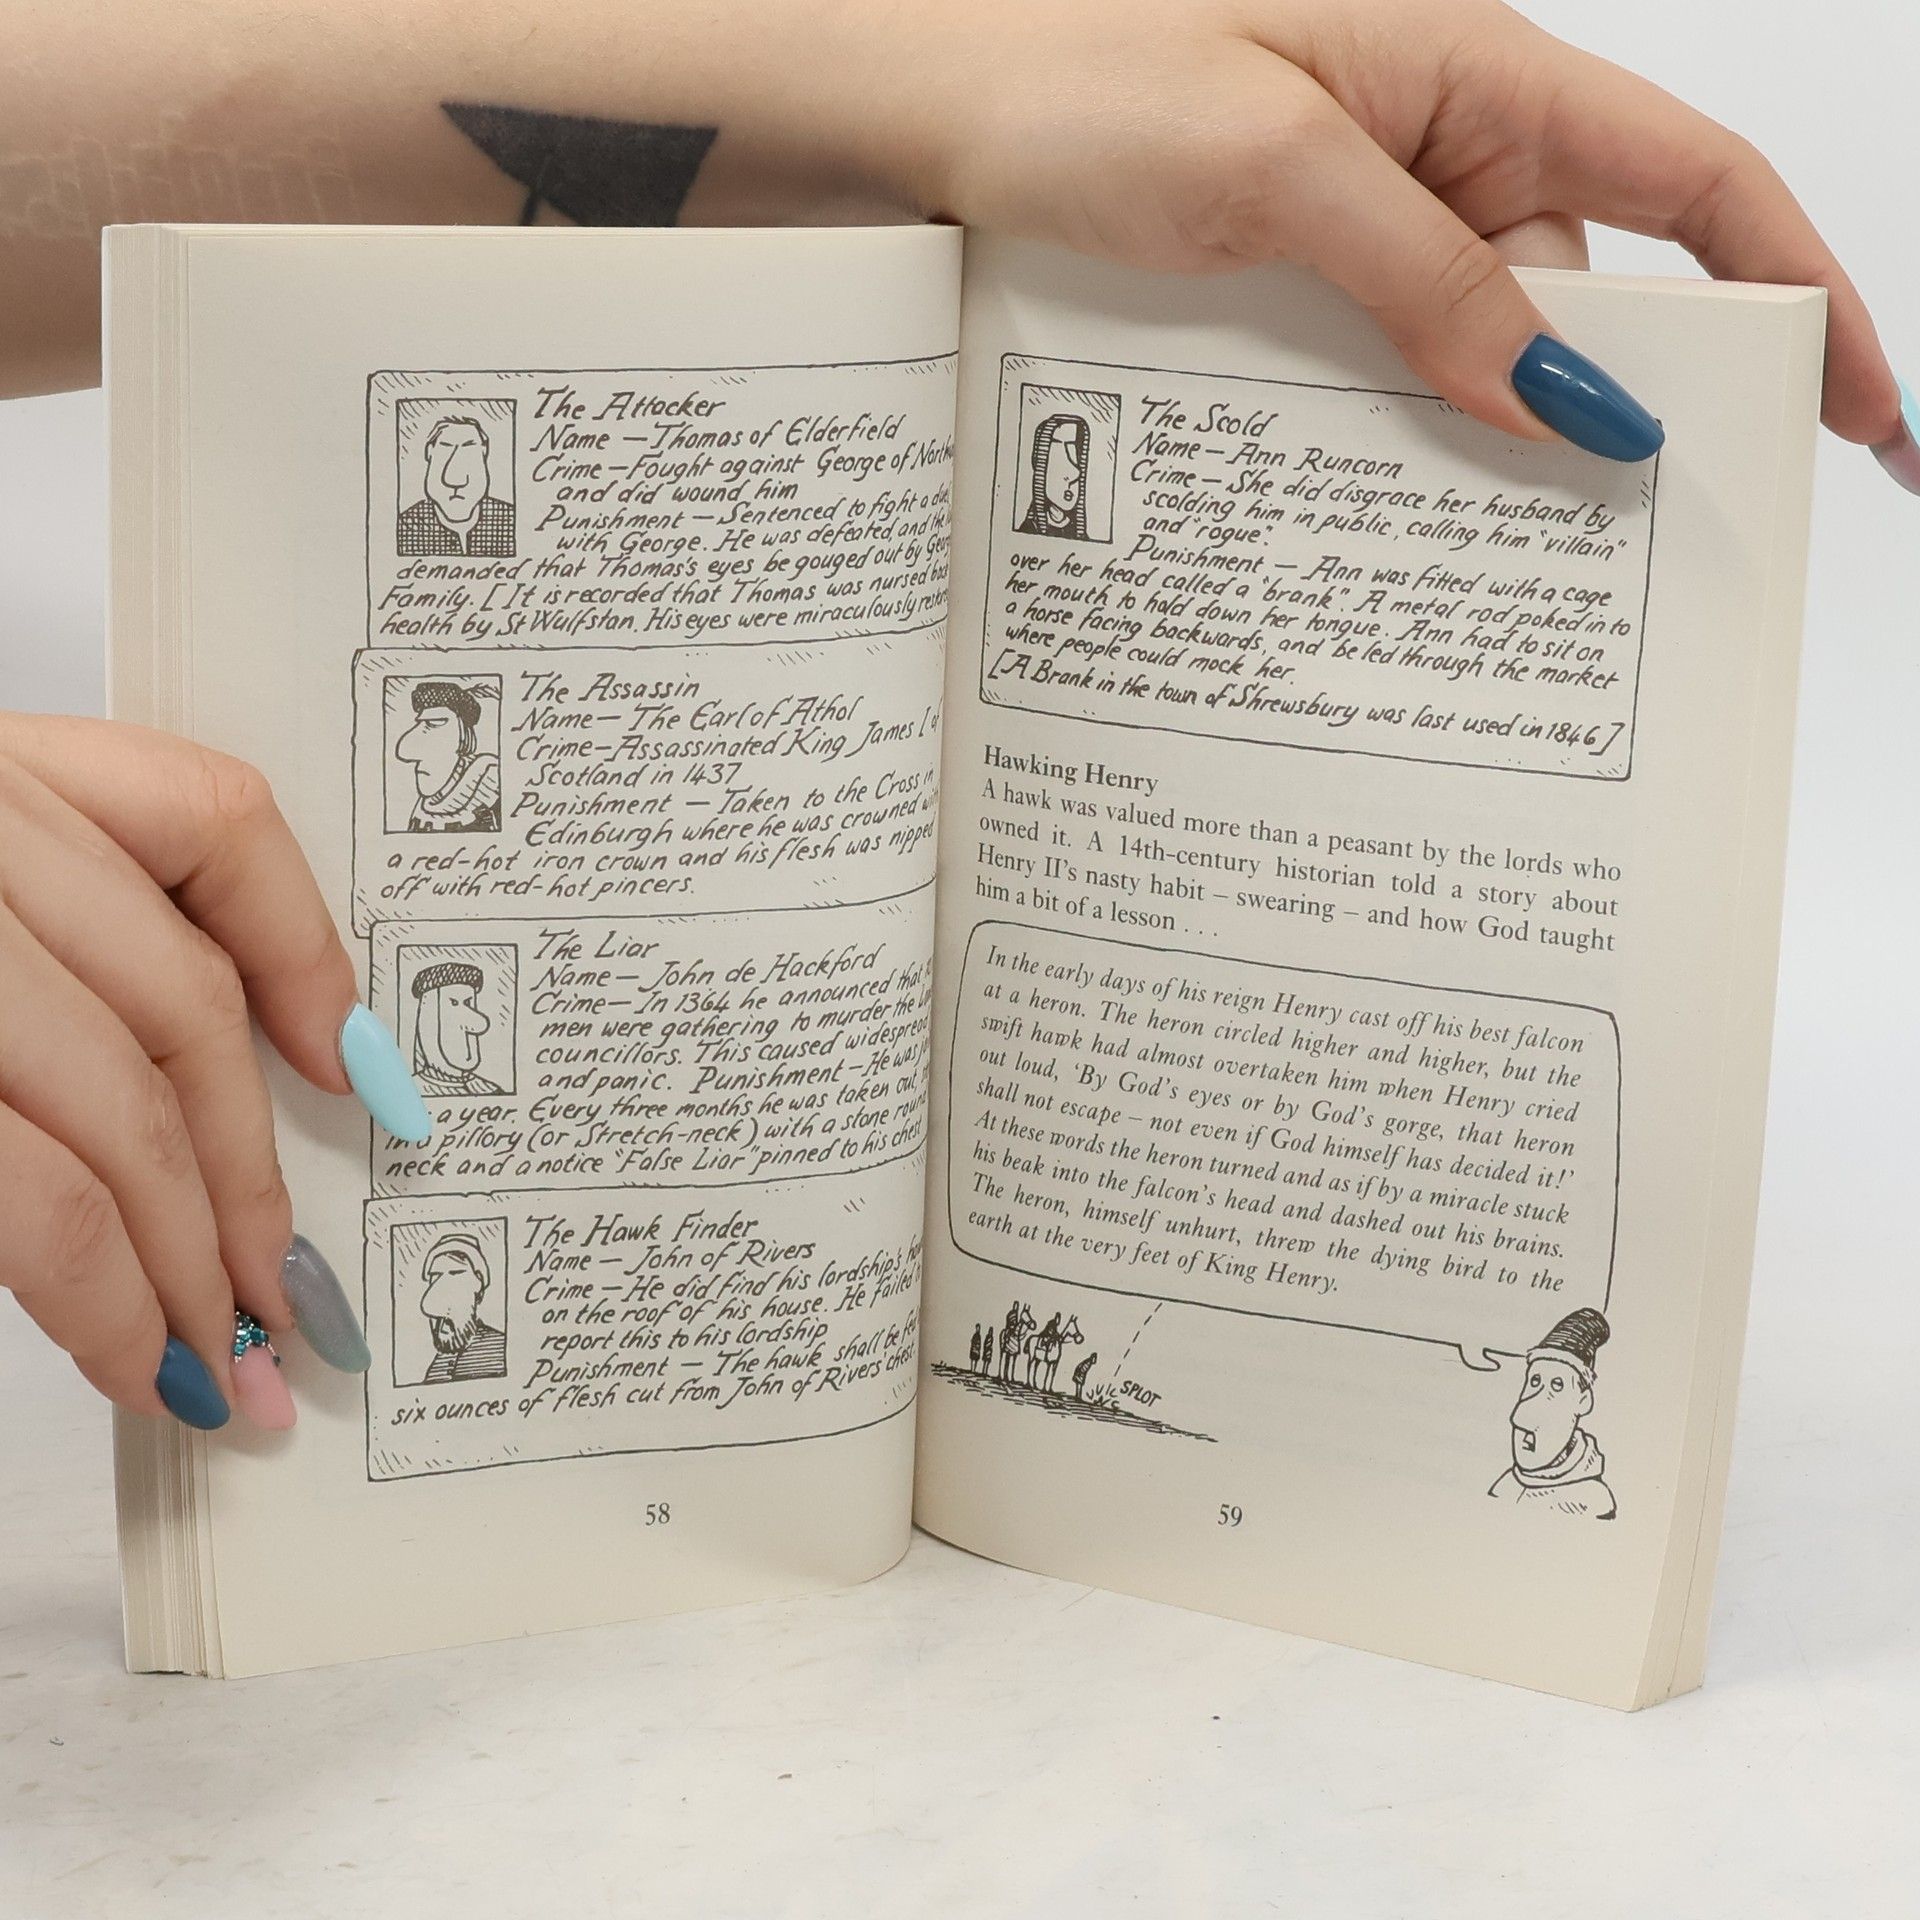 The Attacker
Name – Thomas of Elderfield
Crime – Fought against George of
and did wound him
Punishment – Sentenced to fight a
with George. He was defeated, and the
demanded that Thomas's eyes be gouged out by
Family. [It is recorded that Thomas was nursed back
health by St Wulfstan. His eyes were miraculously
The Assassin
Name – The Earl of Athol
Crime – Assassinated King James I of
Scotland in 1437
Punishment – Taken to the Cross in
Edinburgh where he was crowned with
a red-hot iron crown and his flesh was nipped
off with red-hot pincers.
The Liar
Name – John de Hackford
Crime – In 1364 he announced that
men were gathering to murder the
councillors. This caused widespread
and panic. Punishment – He was
a year. Every three months he was taken out,
in a pillory (or Stretch-neck) with a stone round
neck and a notice "False Liar" pinned to his chest
The Hawk Finder
Name – John of Rivers
Crime – He did find his lordship's
on the roof of his house. He failed to
report this to his lordship
Punishment – The hawk shall be fed
six ounces of flesh cut from John of Rivers' chest.
58
The Scold
Name – Ann Runcorn
Crime – She did disgrace her husband by
scolding him in public, calling him "villain"
and "rogue".
Punishment – Ann was fitted with a cage
over her head called a "brank". A metal rod poked in to
her mouth to hold down her tongue. Ann had to sit on
a horse facing backwards, and be led through the market
where people could mock her.
[A Brank in the town of Shrewsbury was last used in 1846]
Hawking Henry
A hawk was valued more than a peasant by the lords who
owned it. A 14th-century historian told a story about
Henry II's nasty habit – swearing – and how God taught
him a bit of a lesson . . .
In the early days of his reign Henry cast off his best falcon
at a heron. The heron circled higher and higher, but the
swift hawk had almost overtaken him when Henry cried
out loud, 'By God's eyes or by God's gorge, that heron
shall not escape – not even if God himself has decided it!'
At these words the heron turned and as if by a miracle stuck
his beak into the falcon's head and dashed out his brains.
The heron, himself unhurt, threw the dying bird to the
earth at the very feet of King Henry.
SPLOT
59